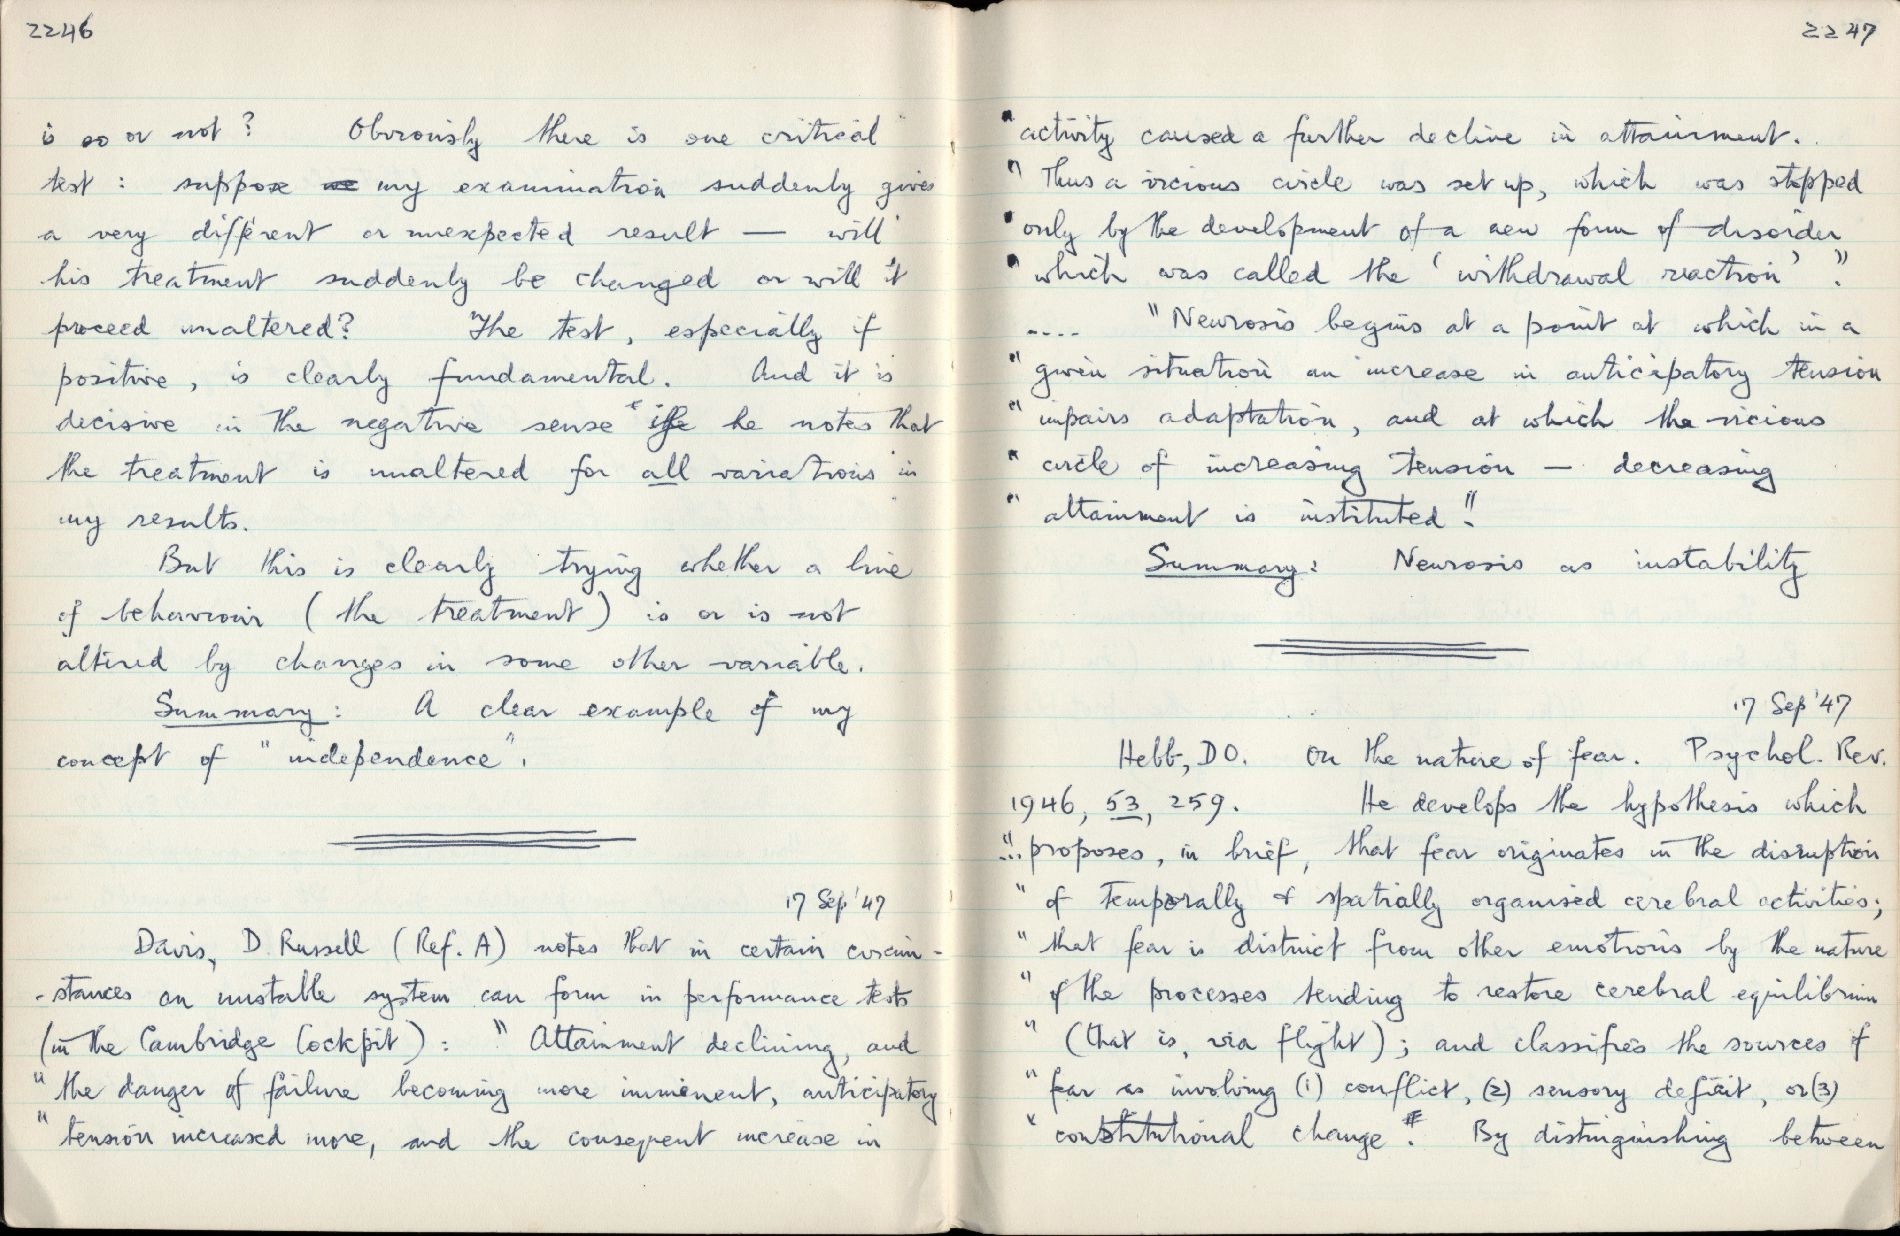 2246
is so or not? Obviously there is one critical
test : suppose we my examination suddenly gives
a very different or unexpected result — will
his treatment suddenly be changed or will it
proceed unaltered? The test, especially if
positive, is clearly fundamental. And it is
decisive in the negative sense if he notes that
the treatment is unaltered for all variations in
my results.
But this is clearly trying whether a line
of behaviour (the treatment) is or is not
altered by changes in some other variable.
Summary: A clear example of my
concept of "independence".
17 Sep '47
Davis, D. Russell (Ref. A) notes that in certain circum-
-stances an unstable system can form in performance tests
(in the Cambridge Cockpit): "Attainment declining, and
"the danger of failure becoming more imminent, anticipatory
"tension increased more, and the consequent increase in
2247
"activity caused a further decline in attainment.
"Thus a vicious circle was set up, which was stopped
"only by the development of a new form of disorder
"which was called the 'withdrawal reaction'."
.... "Neurosis begins at a point at which in a
"given situation an increase in anticipatory tension
"impairs adaptation, and at which the vicious
"circle of increasing tension — decreasing
"attainment is instituted."
Summary: Neurosis as instability
17 Sep '47
Hebb, DO. On the nature of fear. Psychol. Rev.
1946, 53, 259. He develops the hypothesis which
"...proposes, in brief, that fear originates in the disruption
"of temporally & spatially organised cerebral activities;
"that fear is distinct from other emotions by the nature
"of the processes tending to restore cerebral equilibrium
"(that is, via flight); and classifies the sources of
"fear as involving (1) conflict, (2) sensory deficit, or (3)
"constitutional change". By distinguishing between